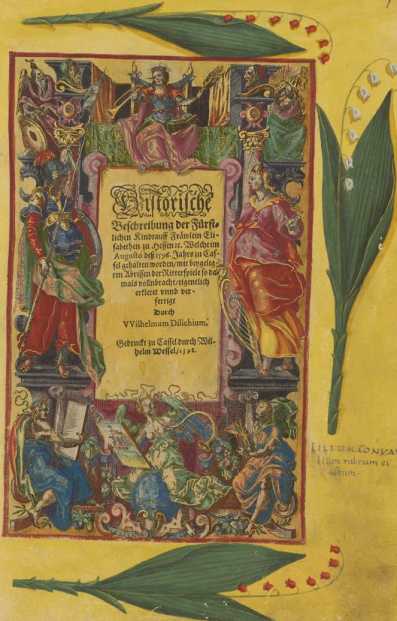 Historische
Beschreibung der Fürst-
lichen Kindtauff Fräwlein Eli-
sabethen zu Hessen ꝛc. Welche im
Augusto deß 1596. Jahrs zu Cas-
sel gehalten worden/ mit beygefüg-
ten Abrissen der Ritterspiele so da-
mals vollnbracht/ eigentlich
erkleret vnnd ver-
fertigt
Durch
VVilhelmum Dilichium.
Gedruckt zu Cassel durch Wil-
helm Wessel/ 1598.
LILIUM CONVA
lilium rubrum et
album.